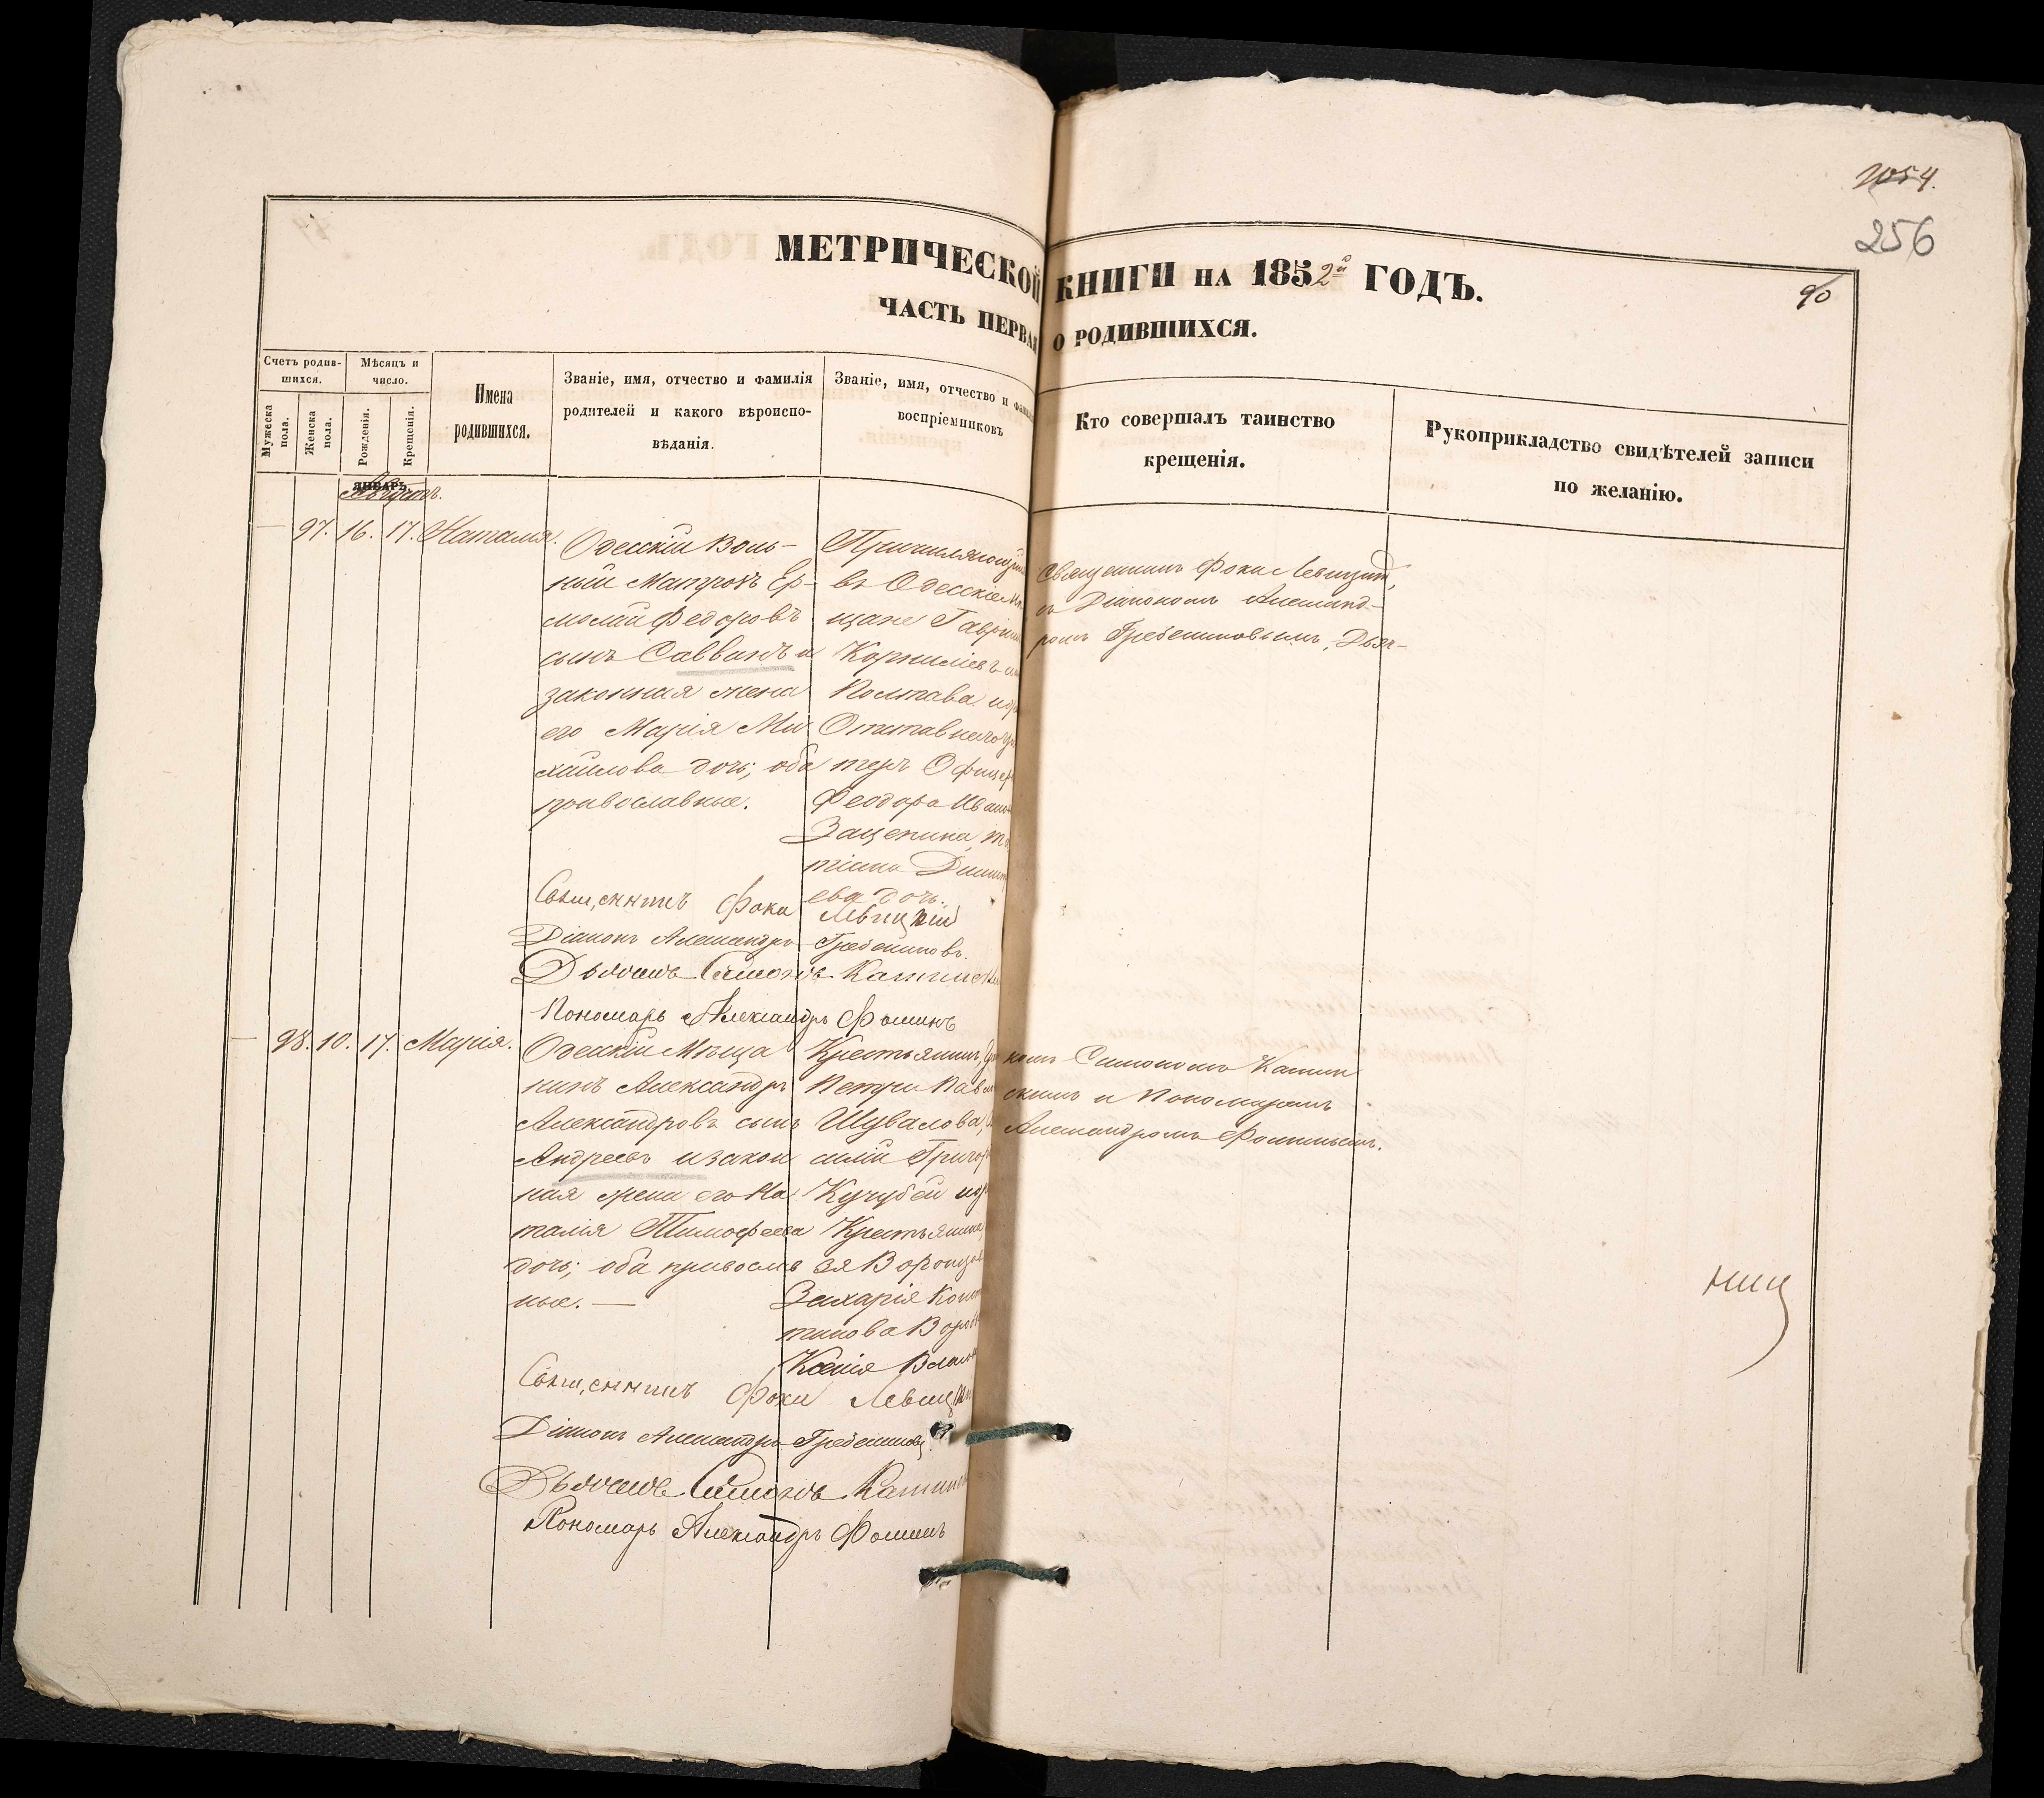 2054.
256
90
МЕТРИЧЕСКОЙ КНИГИ НА 1852й ГОДЪ.
ЧАСТЬ ПЕРВАЯ О РОДИВШИХСЯ.
Счетъ родив-
шихся.
Мужеска
пола.
Женска
пола.
Мѣсяцъ и
число.
Рожденія.
Крещенія.
Имена
родившихся.
Званіе, имя, отчество и фамилія
родителей и какого вѣроиспо-
вѣданія.
Званіе, имя, отчество и фами
воспріемниковъ
Кто совершалъ таинство
крещенія.
Рукоприкладство свидѣтелей записи
по желанію.
ЯНВАРЬ.
Августъ.
97. 16. 17. Наталія.
Одесскій Воль-
ный Матрозъ Ер-
молай Федоровъ
сынъ Саввинъ и
законная жена
его Марія Ми
хайлова дочь; оба
православные.
Причисляющій
въ Одесскіе Мѣ
щане Гавріил
Корниліевъ
Полтава и
Отставнаго Ун
теръ Офицер
Феодора Иван
Зацепина, Та
тіана Димит
ева дочь.
Священникъ Фока Левицкій,
съ Діакономъ Александ-
ромъ Гребенниковымъ, Дьяч-
Священникъ Фока Левицкій
Діаконъ Александръ Гребенниковъ.
Дьячекъ Симонъ
Пономарь Александръ Фоминъ
98. 10. 17. Марія.
Одесскій Мѣща
нинъ Александръ
Александровъ сынъ
Андреевъ и закон
ная жена его На
талія Тимофеева
дочь; оба православ
ные. —
Крестьянинъ
Петра Павл
Шувалова,
силій Григор
Кучубей и
Крестьянина
зя Воронцов
Захарія Конст
тинова Вороб
Ксенія Власо
комъ Симономъ
скимъ и Пономаремъ
Александромъ Фоминымъ.
Священникъ Фока Левицкій
Діаконъ Александръ Гребенниковъ
Дьячекъ Симонъ
Пономарь Александръ Фоминъ